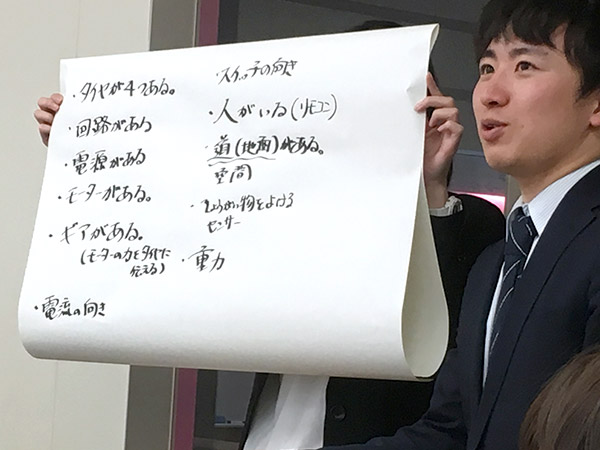 ・タイヤが4つある。
・回路がある
・電源がある
・モーターがある。
・ギアがある。
(モーターの力をタイヤに
伝える)
・電流の向き
・スイッチの向き
・人がいる(リモコン)
・道(地面)がある。
空間
・しょうがい物をよける
センサー
・重力